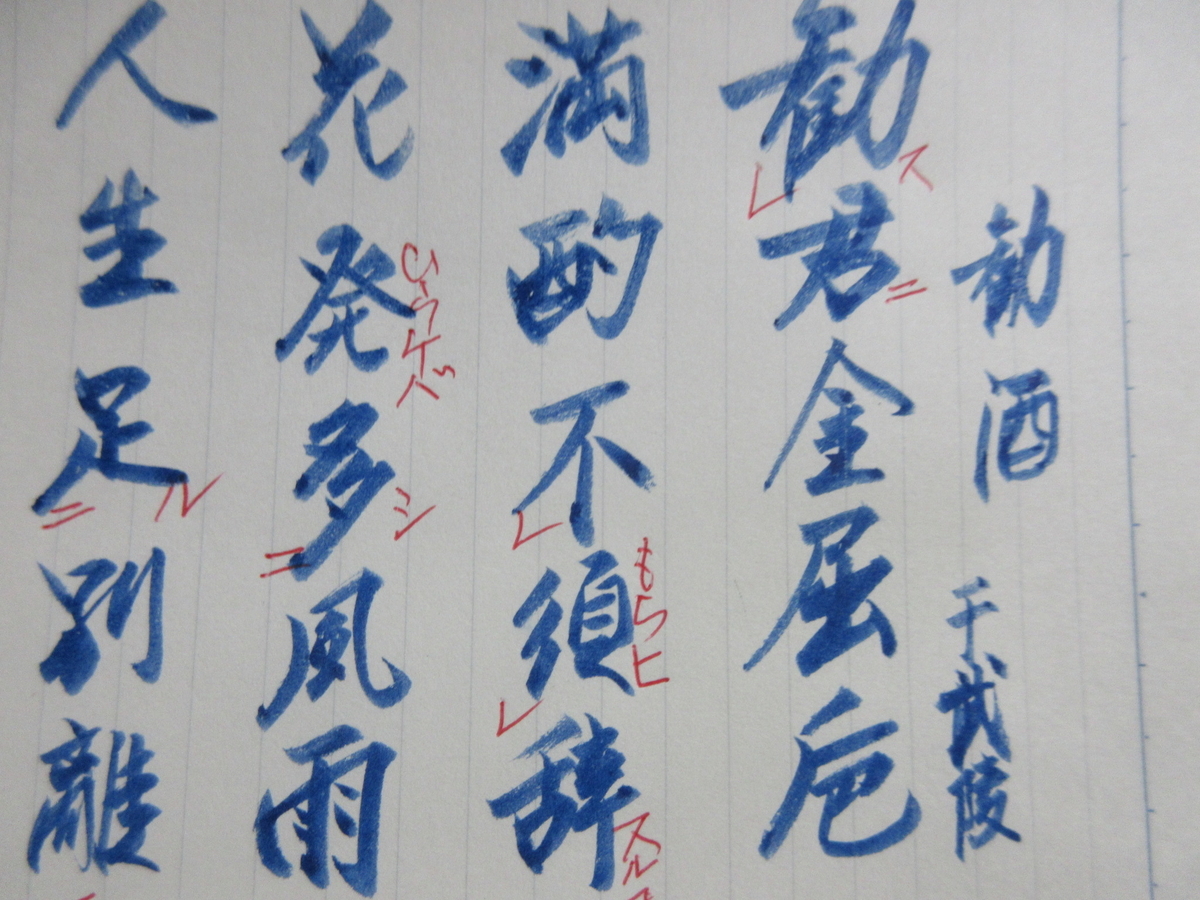 勧酒 于武陵
勧スレ君ニ金屈巵
満酌不レ須もちヒレ辞スル
花発ひらケバ多シ二風雨
人生足ル二別離